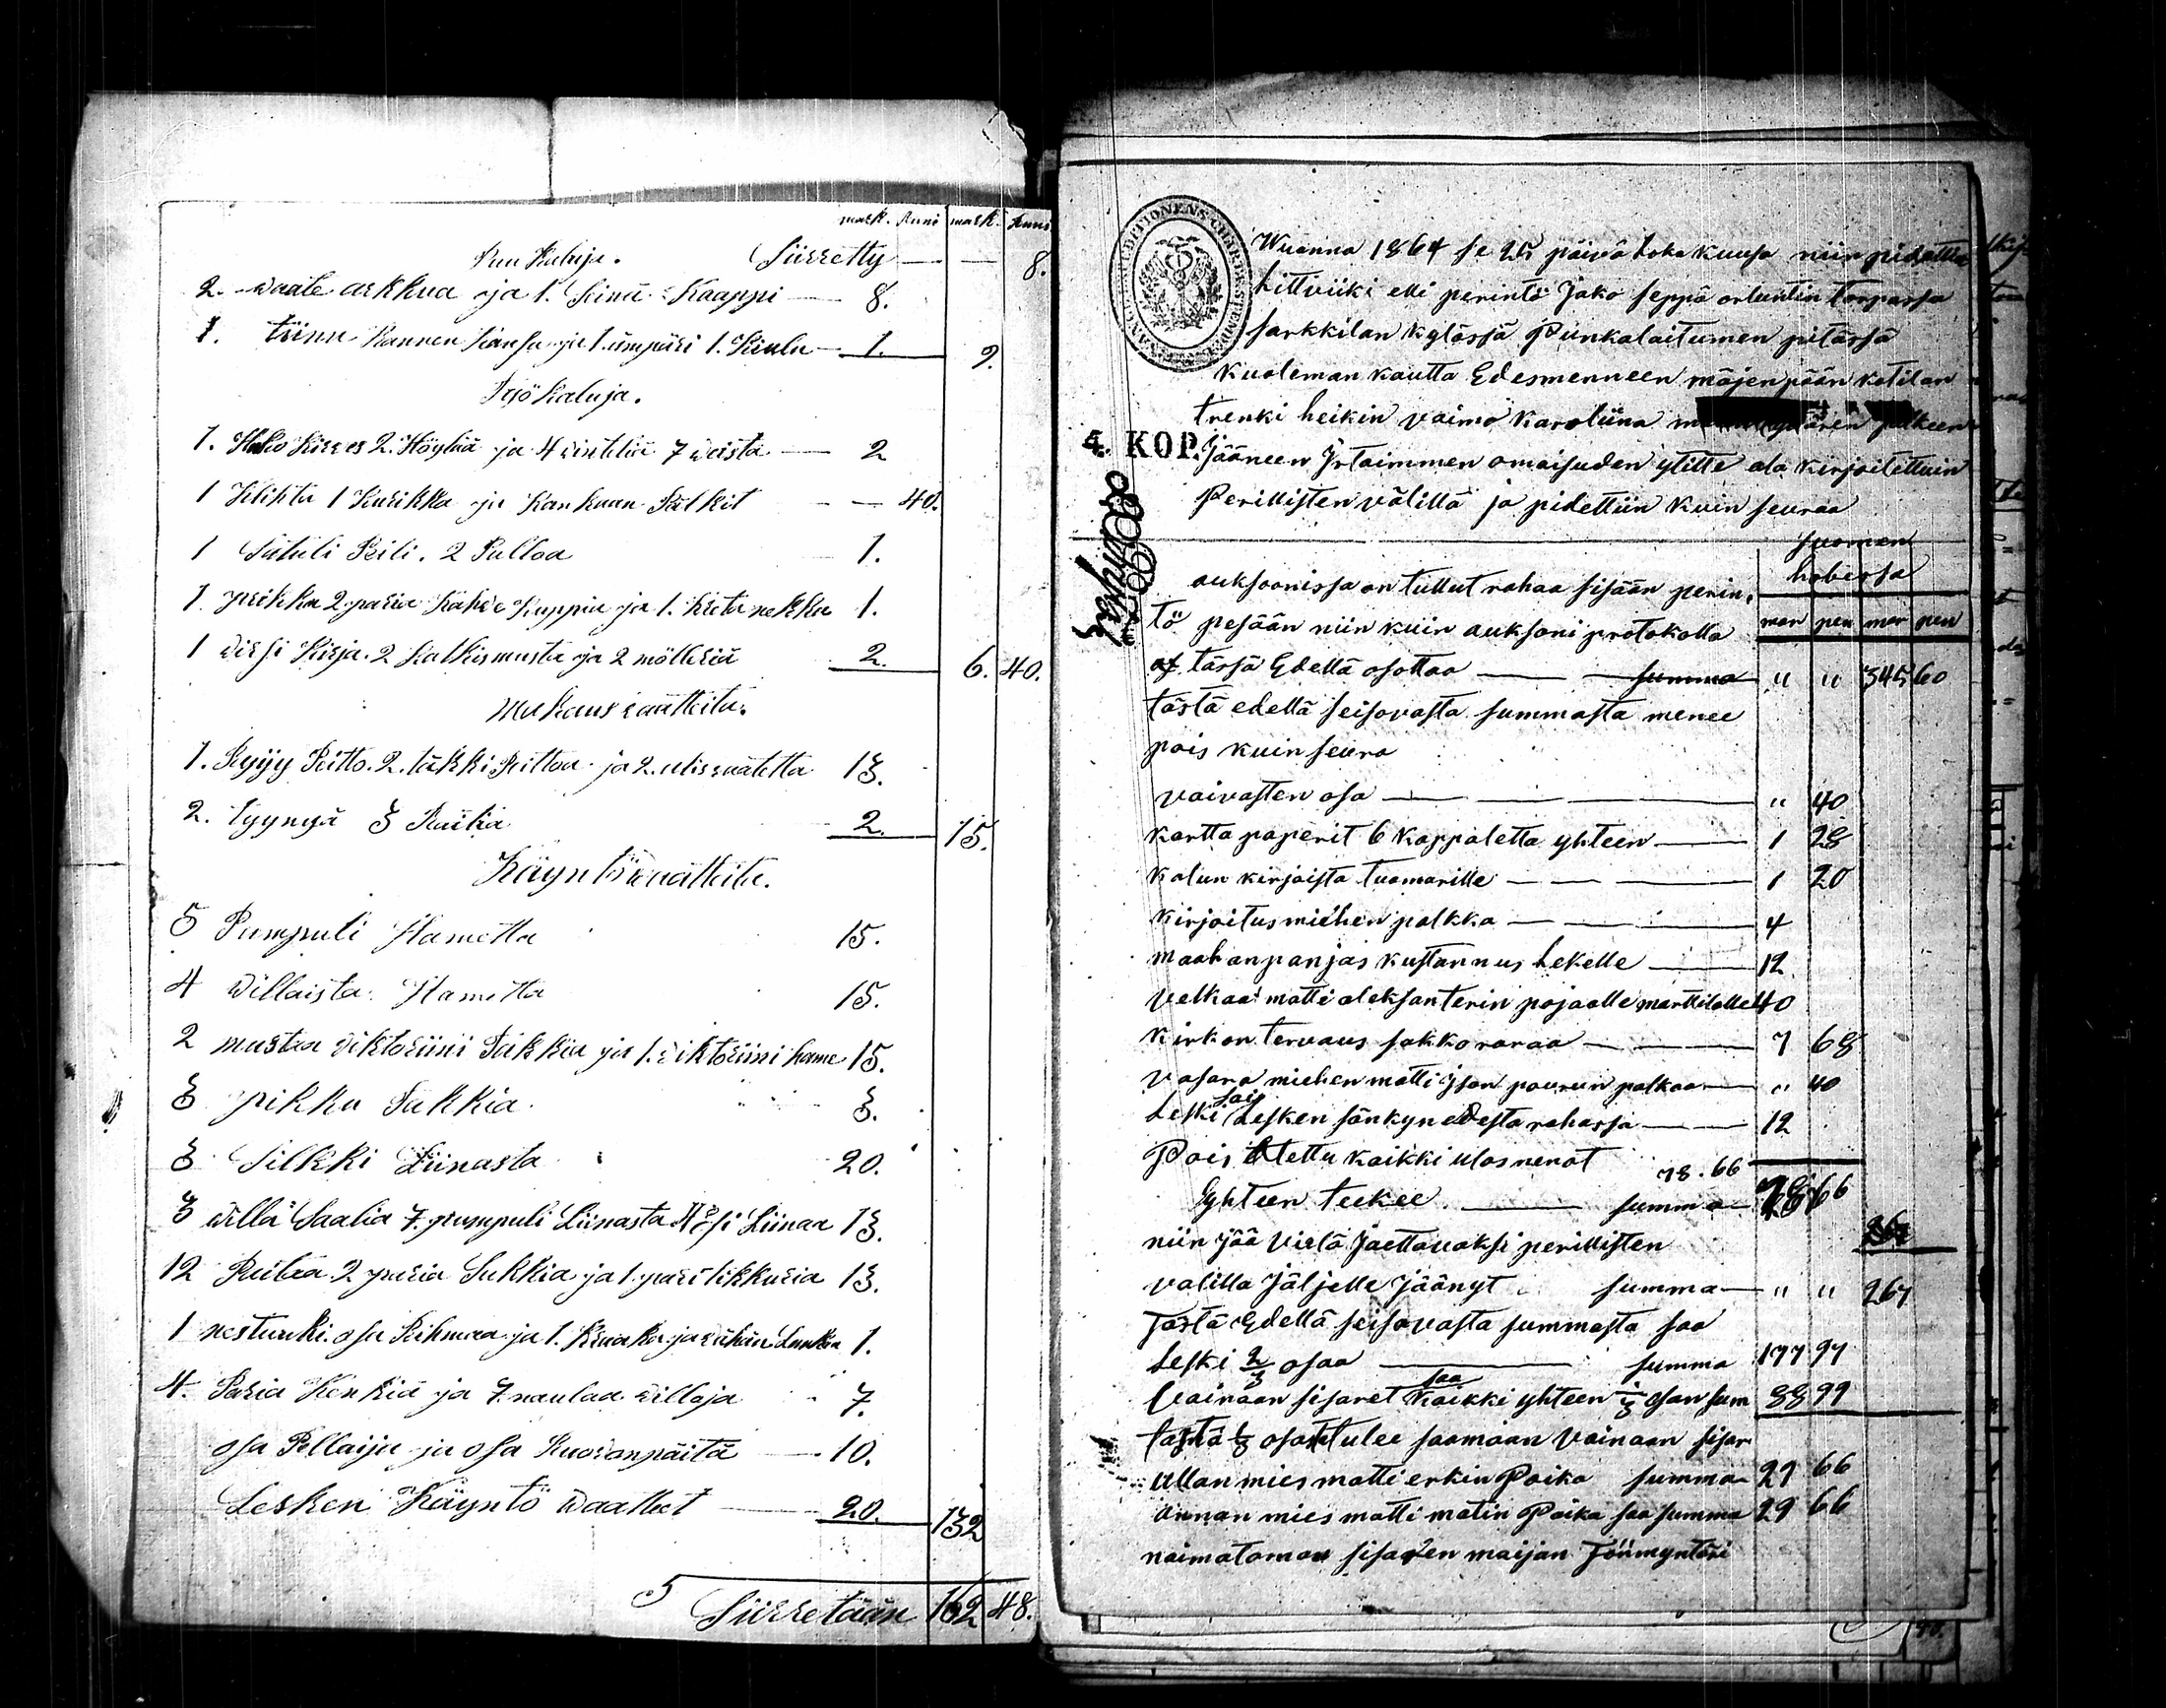 mark. Penni mark. Penni
Puu Kaluja. Siirretty — — 8.
2. waate arkkua ja 1. Seinä Kaappi — 8.
1. tiinu Kannen Kansa ja 1. ämpäri 1. Kiulu — 1. 9.
Työ Kaluja.
1. Halko Kirves 2. Höylää ja 4 vinteliä 7 veistä — 2
1 Klihta 1 Karikka ja Kankaan — — 40.
1 Peili. 2 Pulloa 1.
1. prikka 2 paria Kahve Kuppia ja 1. Kreta nekka 1.
1 virsi Kirja. 2 Katkismusta ja 2 mölleriä 2. 6. 40.
Makaus vaatteita.
1. Ryyy Peitto. 2. täkki Peittoa ja 2. alusvaatetta 13.
2. tyynyä 3 Raitia 2. 15.
Käyntö vaatteita.
5 Pumpuli Hametta 15.
4 villaista Hametta 15.
2 mustaa viktoriini Takkia ja 1. viktoriini hame 15.
3 pikku Takkia. 3.
3 Silkki Liinasta 20.
3 villa Saalia 7. pumpuli Liinasta Liinaa 13.
12 Paitaa 2 paria Sukkia ja 1. pari tikkuria 13.
1 nestuuki. osa Rihmaa ja 1. ja vähän Lankaa 1.
4. Paria Kenkiä ja 7. naulaa villoja 7.
osa Pellavia ja osa Kuoranpäitä — 10.
Lesken Käyntö Waatteet — 20. 132
5
Siirretään 162 48.
CHARTÆ
4. KOP.
Wuonna 1864 se 25 päivä lokakuusa niin pidettin
hittviiki elli perintö Jako seppä orluntin torpassa
sarkkilan kylässä Punkalaitumen pitässä
kuoleman kautta Edesmenneen mäjen pään kotilan
trenki heikin vaimo karoliina jälkeen
Jääneen Irtaimmen omaisuden ylitte ala kirjoitettuin
Perillisten välillä ja pidettiin kuin seuraa
suomen
hobessa
auksoonissa on tullut rahaa sisään perin,
tö pesään niin kuin auksoni protokolla mar pen mar pen
tässä Edellä osottaa — summa " " 345 60
tästä edellä seisovasta summasta menee
pois kuin seura
vaivasten osa — " 40
kartta paperit 6 kappaletta yhteen — 1 28
kalun kirjoista tuomarille — 1 20
kirjoitusmiehen palkka — 4
maahanpanjas kustannus hekelle — 12
velkaa matti aleksanterin pojaalle marttilalle 40
kirkon tervaus sakkoraraa — 7 68
vasara miehen matti Json paurun palkaa — " 40
Leski sai Lesken sänkyn edesta rahassa — 12
Pois Otettu kaikki ulosmenot 78.66
Yhteen teekee — summa 78 66
niin jää vielä Jaettavaksi perillisten
valilla Jäljelle Jäänyt summa — " " 267
Tästä Edellä seisovasta summasta saa
Leski 2/3 osaa — summa 177 97
Vainaan sisaret saa kaikki yhteen 1/3 osan sum 88 99
tästä 1/3 osasta tulee saamaan vainaan sisar
Ullan mies matti erkin Poika summa 29 66
annan mies matti matin Poika saa summa 29 66
naimatoman sisaren maijan